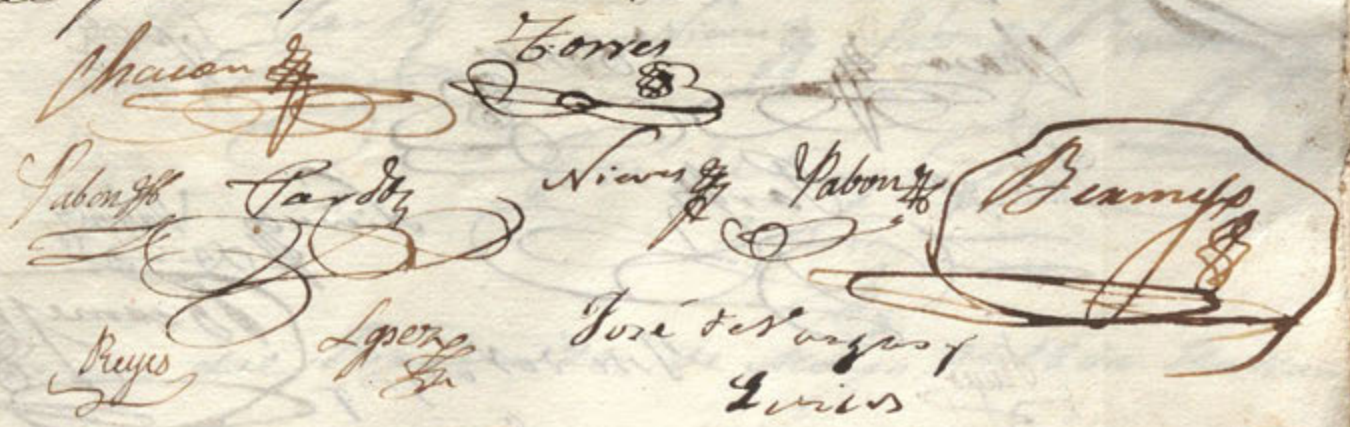 Chacon Torres
Pabon Pardo Nieves Pabon
Reyes Lopez José de Vargas y